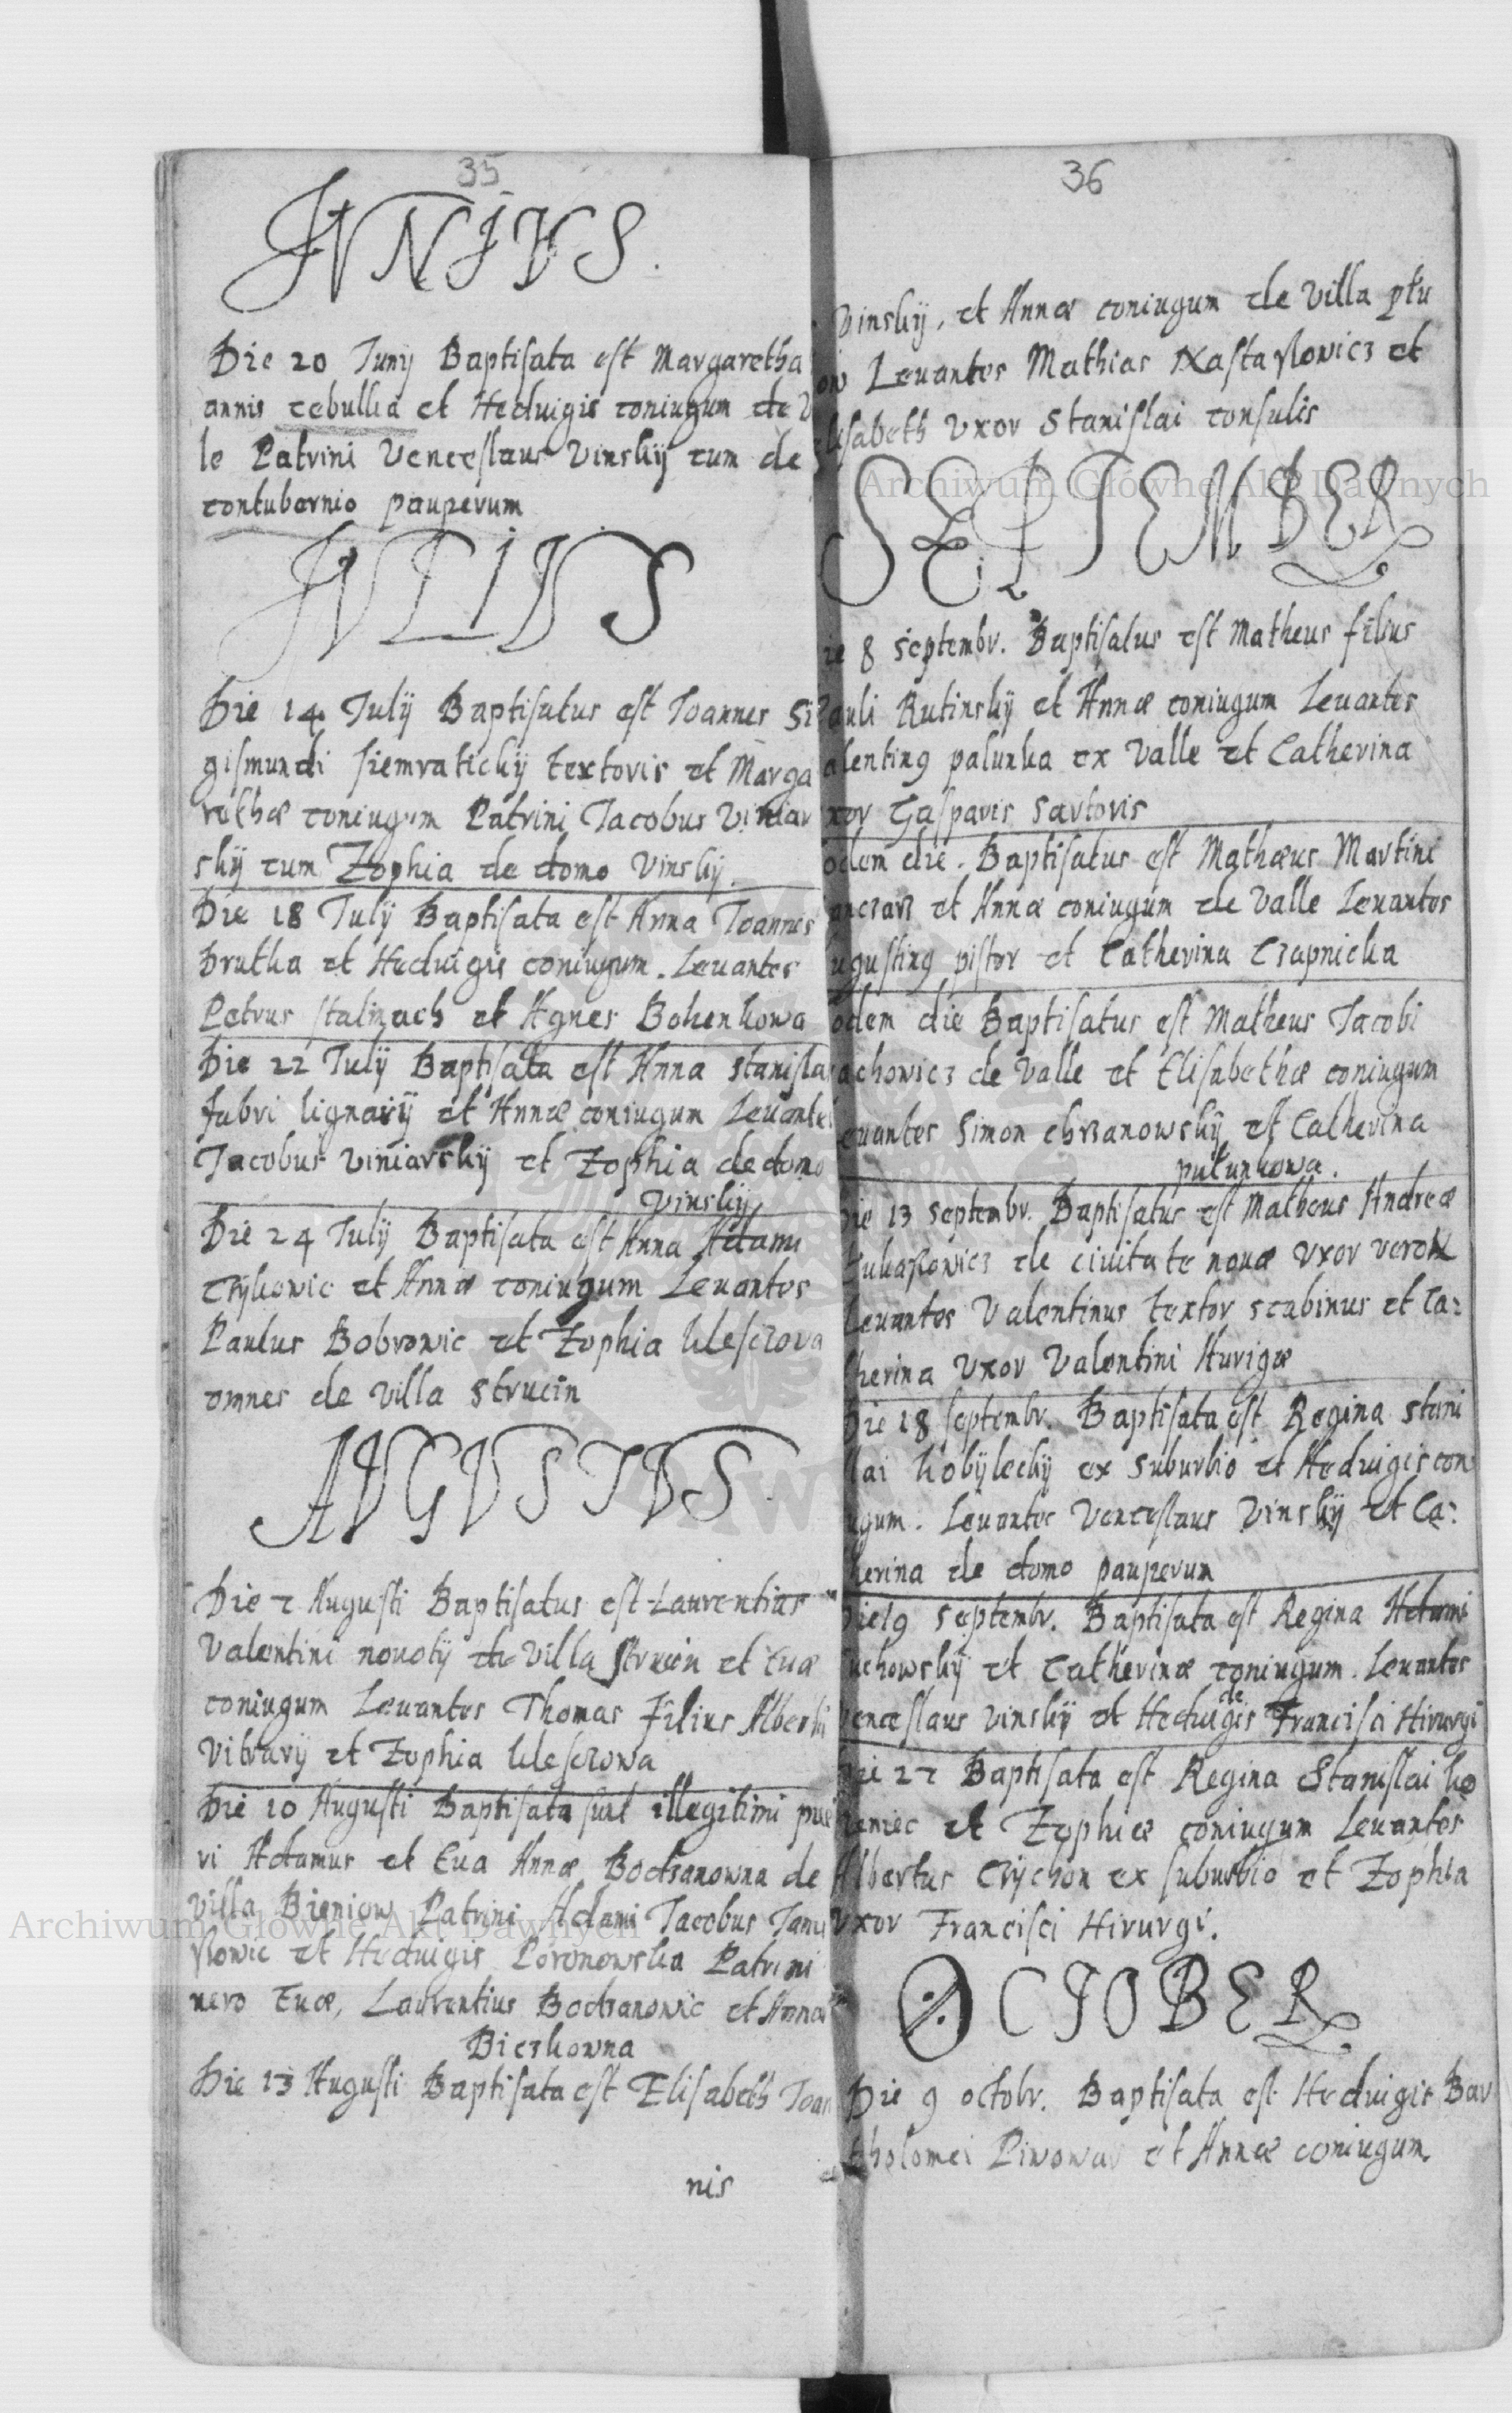 35
JVNIVS.
Die 20 Junÿ Baptisata est Margaretha
annis cebulka et Heduigis coniugum de V
le Patrini Venceslaus Vinskÿ cum de
contubernio pauperum
JVLIVS
Die 14 Julÿ Baptisatus est Joannes Si
gismundi siemratickÿ textoris et Marga
rethæ coniugum Patrini Jacobus Viniar
skÿ cum Zophia de domo Vinskÿ.
Die 18 Julÿ Baptisata est Anna Joannes
Drutka et Heduigis coniugum. Leuantes
Petrus et Agnes Bohenkowa
Die 22 Julÿ Baptisata est Anna stanisla
fabri lignarÿ et Annæ coniugum Leuantes
Jacobus Viniarskÿ et Zophia de domo
Vinskÿ
Die 24 Julÿ Baptisata est Anna Adami
et Annæ coniugum Leuantes
Paulus Bobrowic et Zophia
omnes de villa strucin
AVGVSTVS.
Die 7 Augusti Baptisatus est Laurentius
Valentini nouotÿ de villa strucin et Euæ
coniugum Leuantes Thomas Filius Alberti
Vitrarÿ et Zophia
Die 10 Augusti Baptisata sunt illegitimi pue
ri Adamus et Eua Annæ Bodzanowna de
villa Bieniow Patrini Adami Jacobus Janu
et Heduigis Patrini
uero Euæ, Laurentius Bodzanowic et Anna
Bieskowna
Die 13 Augusti Baptisata est Elisabeth Joan
nis
36
Vinskÿ, et Annæ coniugum de Villa
ow Leuantes Mathias et
lisabeth Vxor Stanislai consulis
SEPTEMBER
ie 8 Septembr. Baptisatus est Matheus filius
auli Rutinskÿ et Annæ coniugum Leuantes
alentinꝰ palunka ex Valle et Catherina
xor Gasparis sartoris
odem die. Baptisatus est Mathæus Martini
et Annæ coniugum de Valle Leuantes
ugustinꝰ pistor et Catherina Czapnicka
odem die Baptisatus est Matheus Jacobi
achowicz de Valle et Elisabethæ coniugum
euantes Simon chrzanowskÿ et Catherina
palunkowa.
Die 13 septembr. Baptisatus est Matheus Andreæ
de ciuitate noua Vxor vero N
Leuantes Valentinus textor scabinus et Ca:
therina Vxor Valentini Aurigæ
Die 18 septembr. Baptisata est Regina stani
lai kobÿleckÿ ex suburbio et Heduigis con
ugum. Leuantes Venceslaus Vinskÿ et Ca:
herina de domo pauperum
Die 19 septembr. Baptisata est Regina Adami
uchowskÿ et Catherinæ coniugum. Leuantes
Venceslaus vinskÿ et Heduigis de Francisci Hirurgi
Die 27 Baptisata est Regina Stanislai ko
et Zophiæ coniugum Leuantes
Albertus Czÿchon ex suburbio et Zophia
Vxor Francisci Hirurgi.
OCTOBER
Die 9 octobr. Baptisata est Heduigis Bar
tholomei Piwowar et Annæ coniugum
Archiwum Główne Akt Dawnych
Archiwum Główne Akt Dawnych